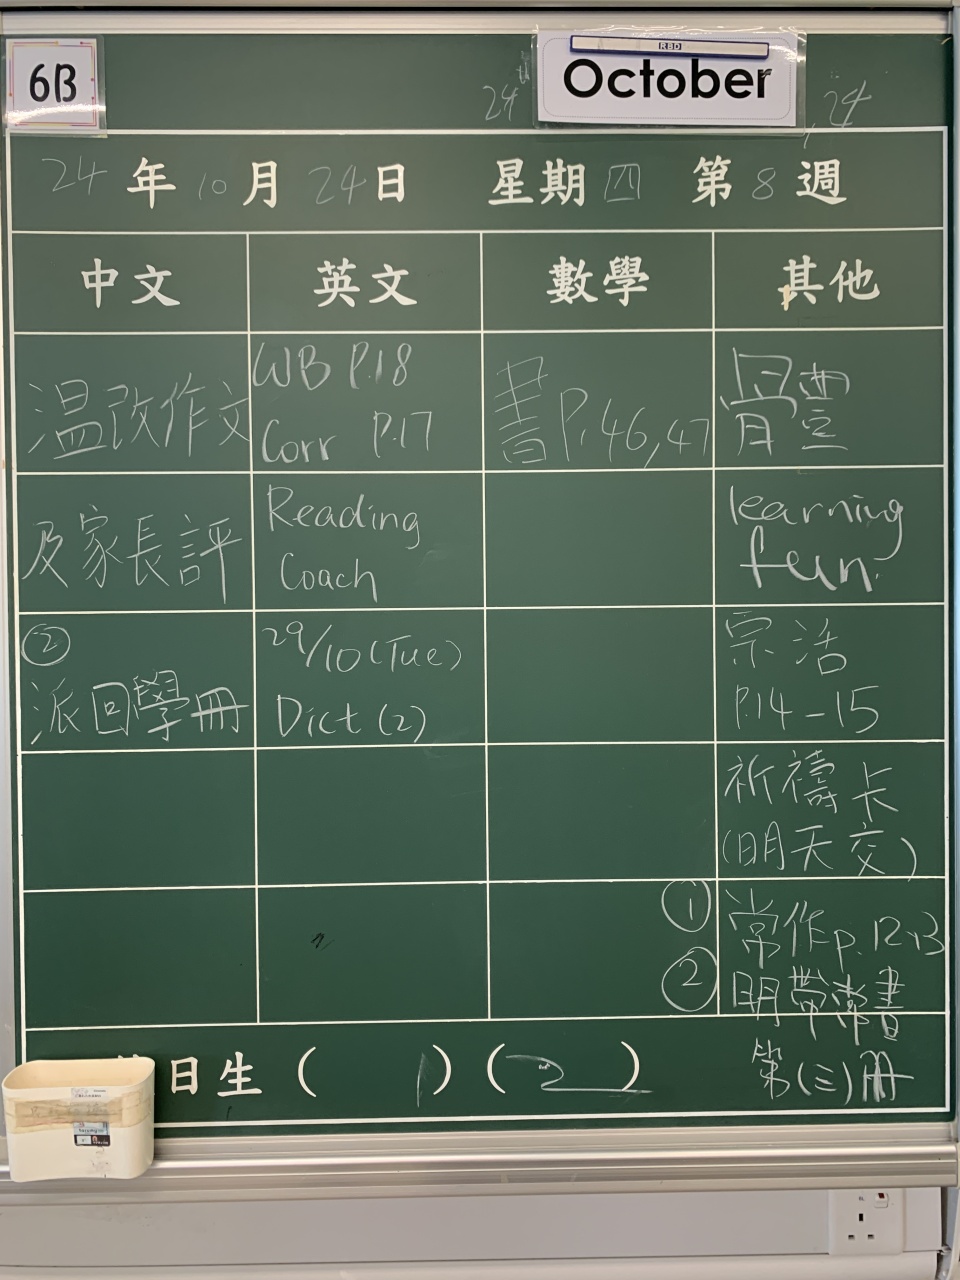 6B
RBD
October
24th
, 24
24 年 10 月 24 日 星期 四 第 8 週
中文 英文 數學 其他
温改作文
及家長評
②
派回學冊
WB P.18
Corr P.17
Reading
Coach
29/10 (Tue)
Dict (2)
書P.46,47
體
learning
fun.
宗活
P.14-15
祈禱卡
(明天交)
① 常作p.12,13
② 明帶常書
第(三)冊
日生 ( 1 ) ( 2 )